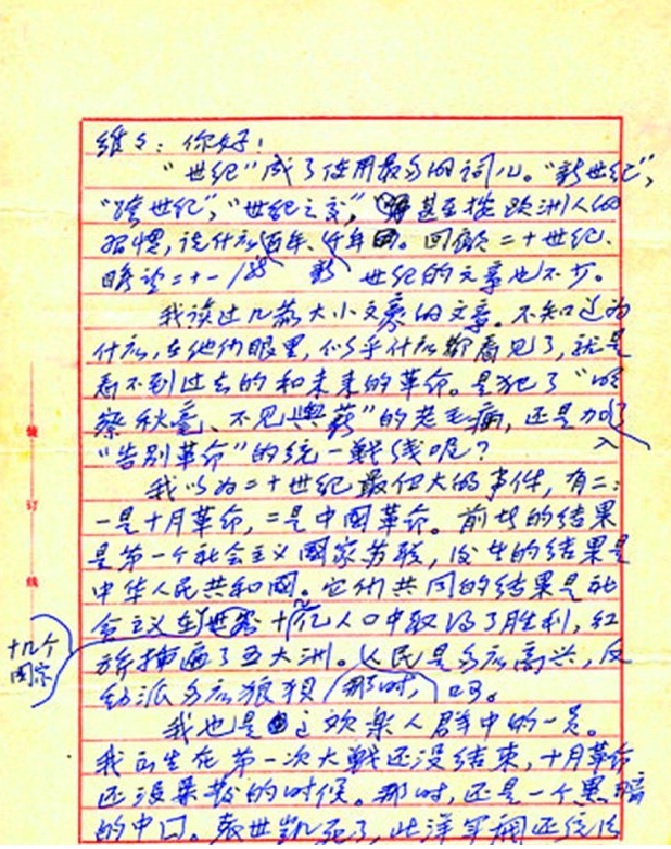 维々：你好！
"世纪"成了使用最多的词儿。"新世纪"，
"跨世纪"，"世纪之交"，甚至按欧洲人的
习惯，说什么百年、千年的。回顾二十世纪、
瞻望二十一 新 世纪的文章也不少。
我读过几篇大小文豪的文章。不知道为
什么，在他们眼里，似乎什么都看见了，就是
看不到过去的和未来的革命。是犯了"明
察秋毫、不见舆薪"的老毛病，还是加了
入
"告别革命"的统一战线呢？
我以为二十世纪最伟大的事件，有二：
一是十月革命，二是中国革命。前者的结果
是第一个社会主义国家苏联，后者的结果是
中华人民共和国。它们共同的结果是社
会主义在 十亿人口中取得了胜利，红
十几个
国家
旗插遍了五大洲。人民是多么高兴，反
动派多么狼狈 那时， 。
我也是这欢乐人群中的一员。
我出生在第一次大战还没结束，十月革命
还没暴发的时候。那时，还是一个黑暗
的中国。袁世凯死了，北洋军阀还统治
装
订
线